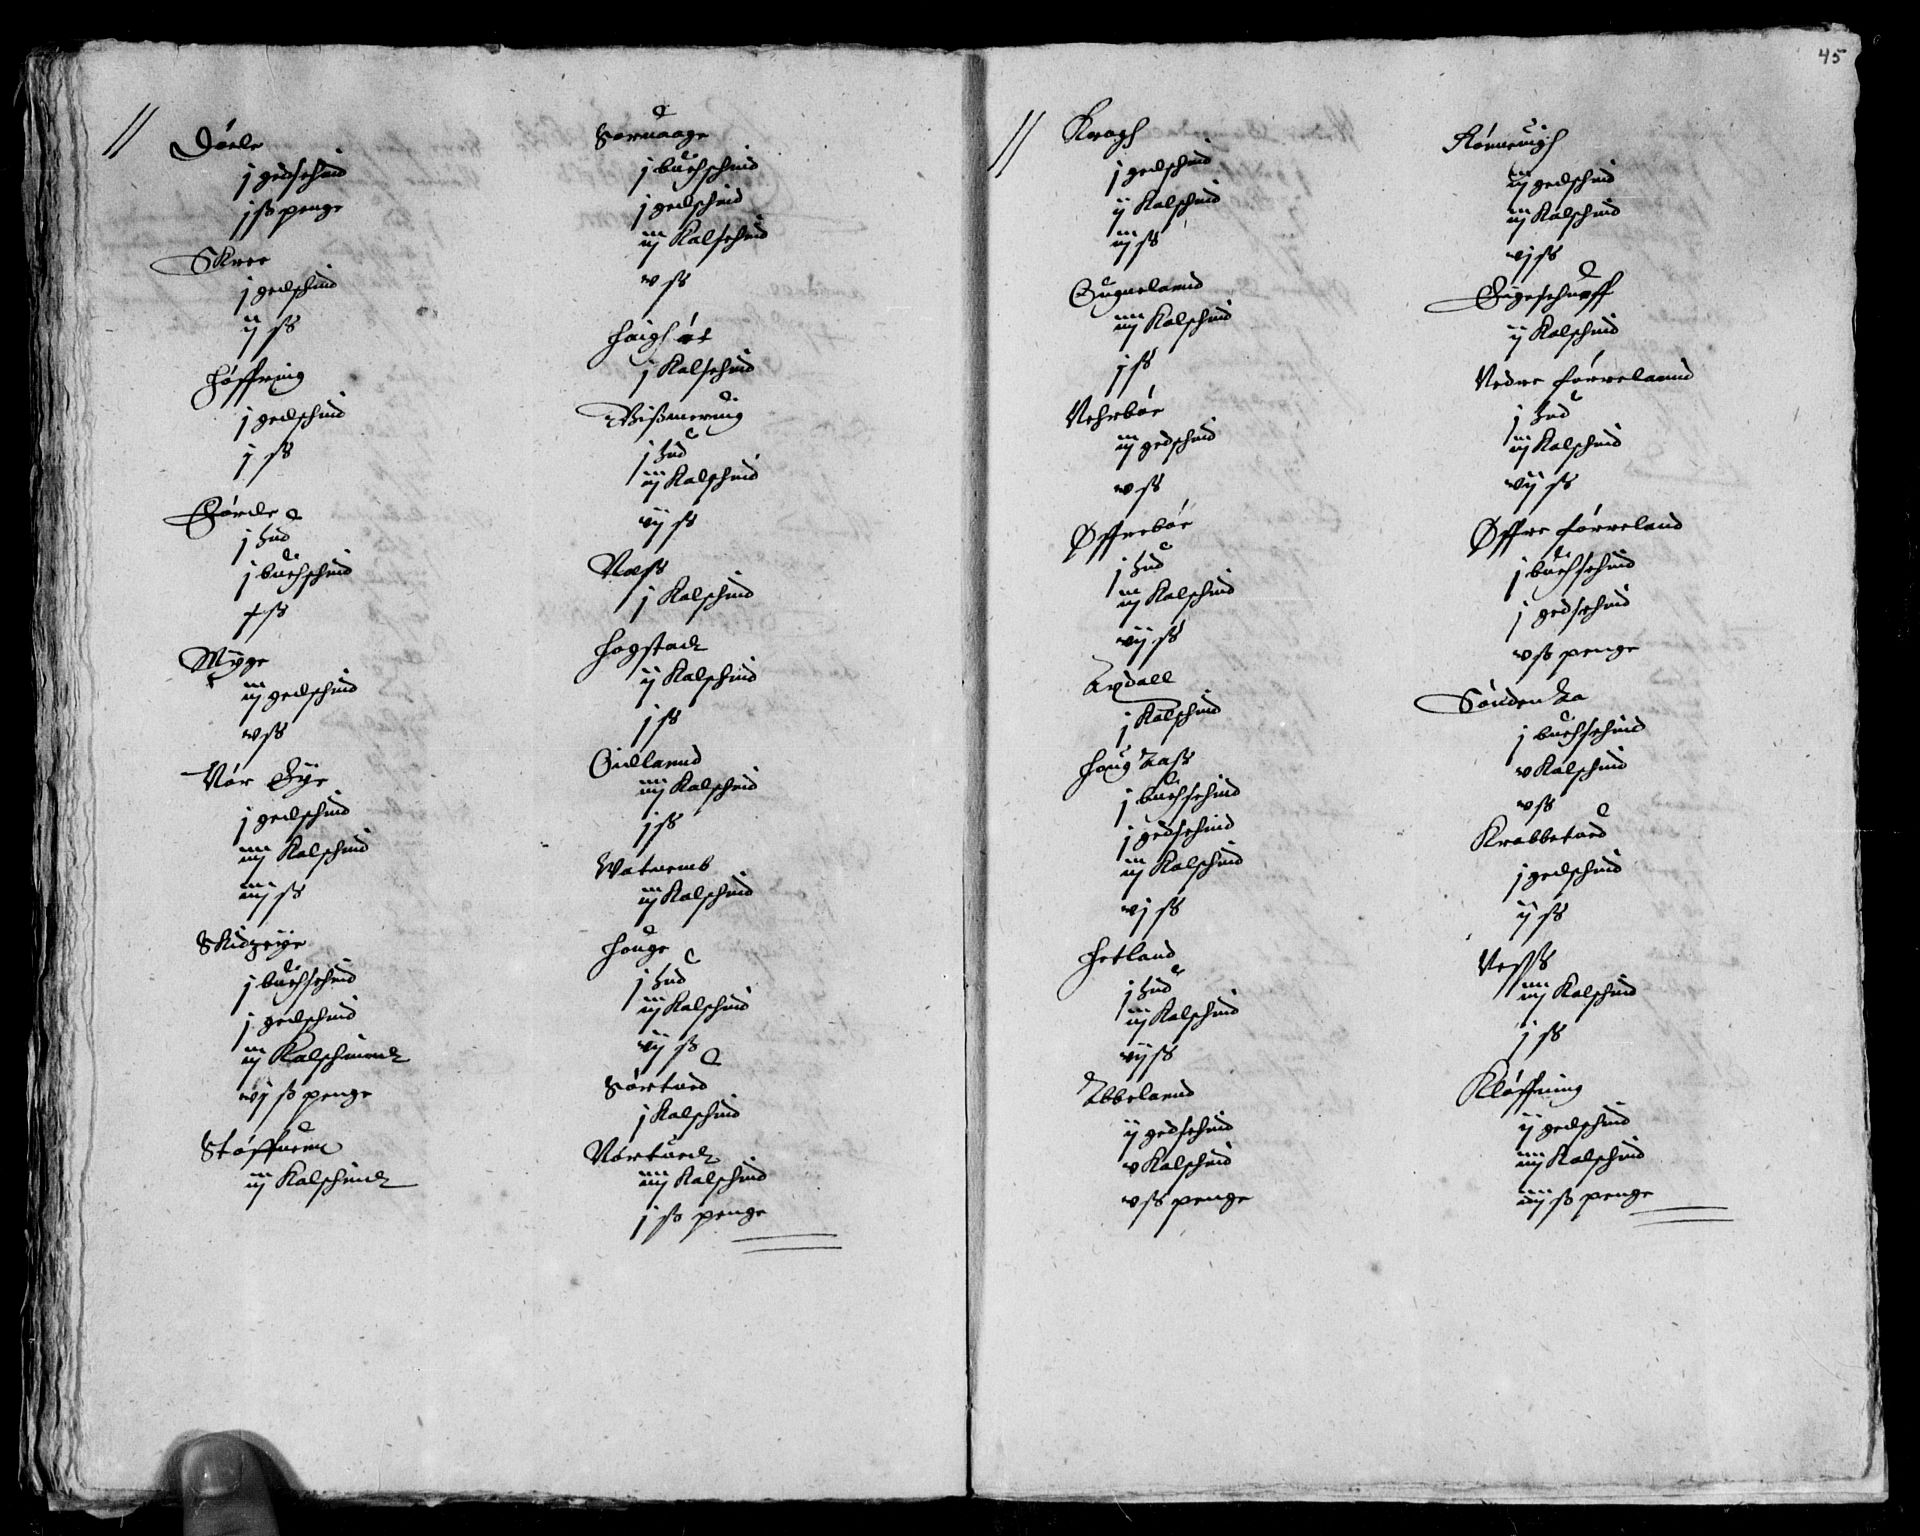 Døele
j gedschind
j ß penge
Skree
j gedschind
ij ß
Høffring
j gedschind
j ß
Børde
j hud
j buchschind
x ß
Myge
iij gedschind
v ß
Nør Eye
j gedschind
iiij Kalschind
iiij ß
Skidzeye
j buchschind
j gedschind
iij Kalschindt
vj ß penge
Støffuern
iij Kalschindt
Soruaage
j buchschind
j gedschind
iij Kalschind
v ß
j Kalschind
Wißmerung
j hud
iij Kalschind
vij ß
Næß
j Kalschind
Hogstadt
ij Kalschind
j ß
Gidland
iiij Kalschind
j ß
Watnemb
iij Kalschind
Houge
j hud
iij Kalschind
vij ß
Sørtued
j Kalschind
Nørtuedt
iiij Kalschind
j ß penge
45
Kragh
j gedschind
ij Kalschind
iij ß
Gugneland
iiij Kalschind
j ß
Nehrbøe
iij gedschind
v ß
Øffrebøe
j hud
iij Kalschind
vij ß
Axdall
j Kalschind
Houg Aaß
j buchschind
j gedschind
iij Kalschind
vj ß
Hetland
j hud
iij Kalschind
vij ß
Abbeland
ij gedschind
v Kalschind
v ß penge
Rønneuigh
iij gedschind
iij Kalschind
vj ß
Eigeschuff
ij Kalschind
Nedre Førreland
j hud
iij Kalschind
vij ß
Øffre Førreland
j buchschind
j gedschind
v ß penge
Sønden Aa
j buchschind
v Kalschind
v ß
Krabbetued
j gedschind
ij ß
Neß
iiij Kalschind
j ß
Kløffning
ij gedschind
iiij Kalschind
iiij ß penge